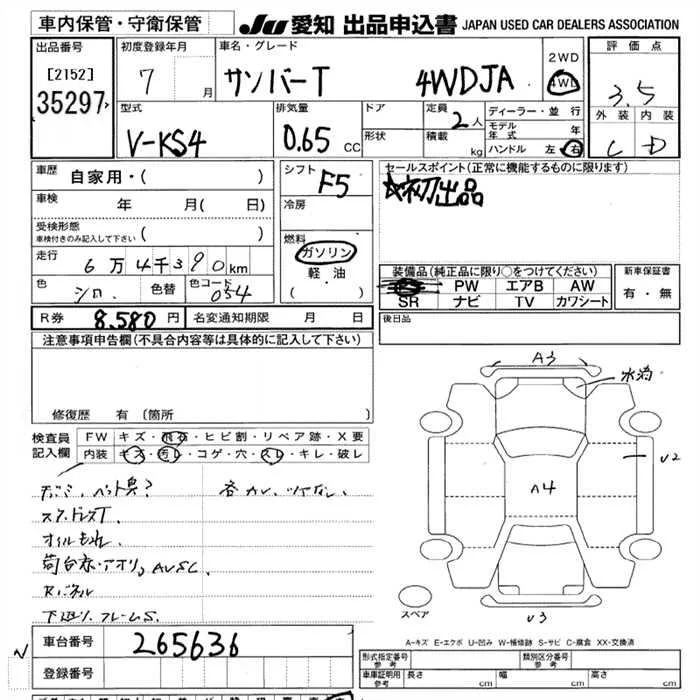 車内保管・守衛保管 JU 愛知 出品申込書 JAPAN USED CAR DEALERS ASSOCIATION
出品番号 初度登録年月 車名・グレード 2WD 評価点
[2152] 7 月 サンバーT 4WDJA 4WD 3.5
35297
型式 排気量 ドア 定員 2人 ディーラー・並行 外装 内装
V-KS4 0.65 CC 形状 積載 kg モデル年式 年 C D
ハンドル 左 右
車歴 自家用・( ) シフト F5 セールスポイント(正常に機能するものに限ります)
車検 年 月( 日) 冷房 ☆初出品
受検形態 車検付きのみ記入して下さい ( ) 燃料
走行 6万4千390km ガソリン
色 シロ 色替 色コード 054 軽油 ( ・ )
装備品(純正品に限り○をつけてください) 新車保証書
PW エアB AW 有・無
SR ナビ TV カワシート
R券 8.580円 名変通知期限 月 日 後日品
注意事項申告欄(不具合内容等は具体的に記入して下さい)
修復歴 有〔箇所 〕
検査員記入欄 FW キズ・飛石・ヒビ割・リペア跡・X要
内装 キズ・汚レ・コゲ・穴・スレ・キレ・破レ
A3
U2
A4
U3
スペア
オイルもれ
下廻り、フレームS.
A-キズ E-エクボ U-凹み W-補修跡 S-サビ C-腐食 XX-交換済
車台番号 265636
登録番号
形式指定番号 参考 類別区分番号 参考
車庫証明用 参考 長さ cm 幅 cm 高さ cm